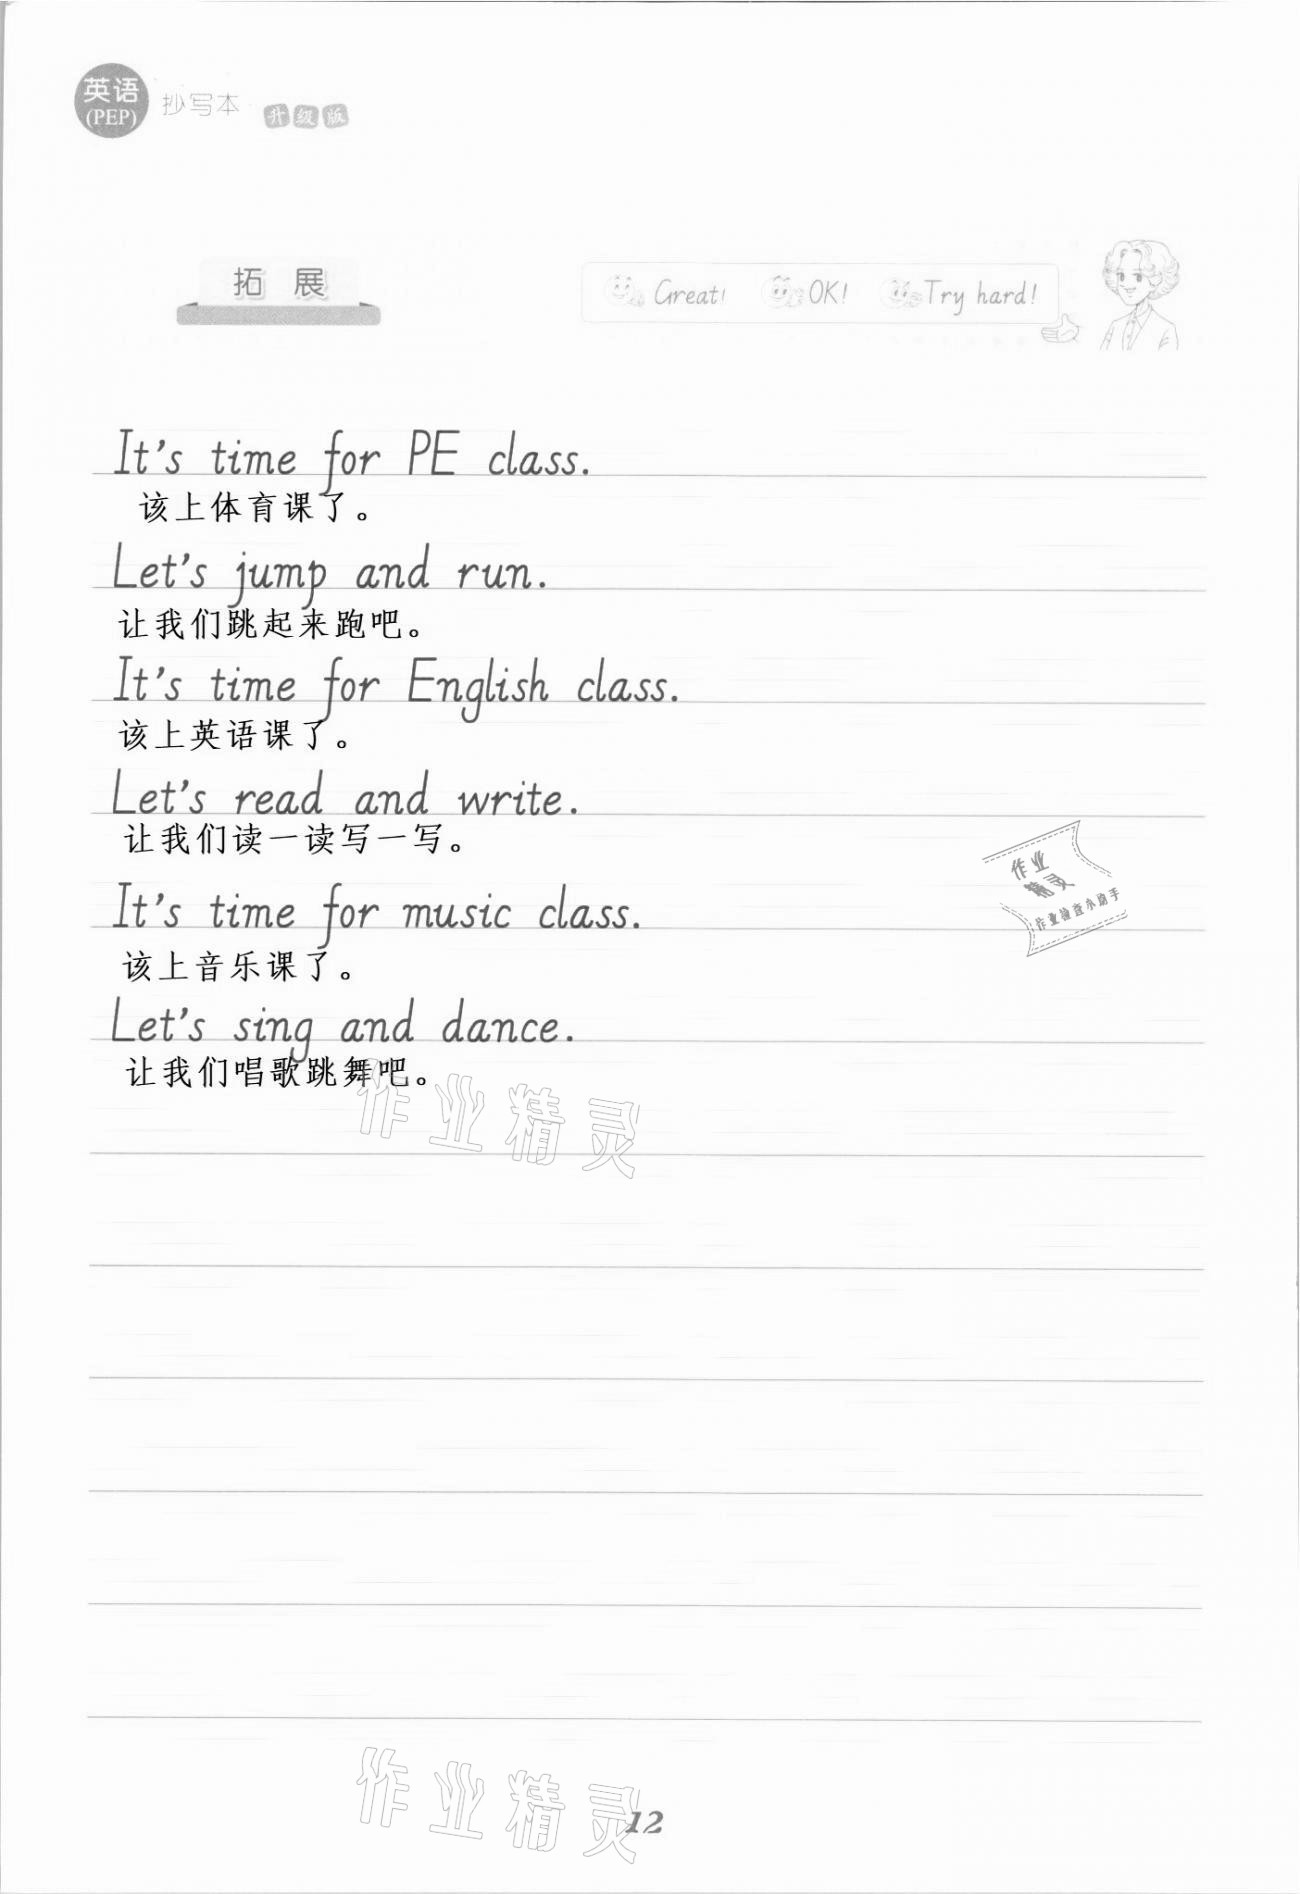 英语
(PEP)
抄写本
升级版
拓展
Great! OK! Try hard!
It's time for PE class.
该上体育课了。
Let's jump and run.
让我们跳起来跑吧。
It's time for English class.
该上英语课了。
Let's read and write.
让我们读一读写一写。
作业
精灵
作业检查小助手
It's time for music class.
该上音乐课了。
Let's sing and dance.
让我们唱歌跳舞吧。
作业精灵
作业精灵
12